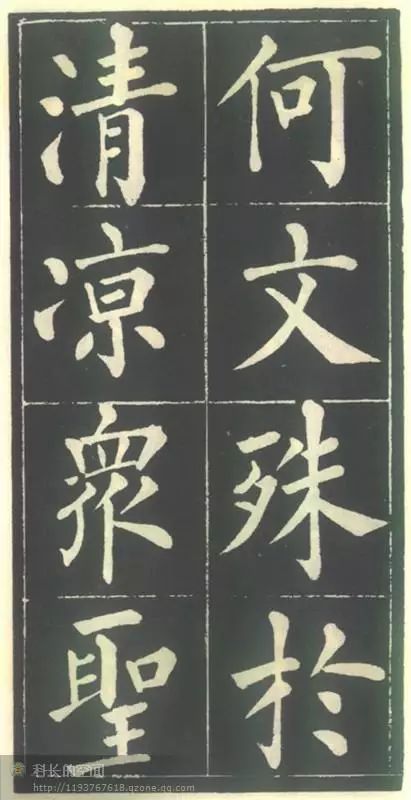 何文殊於
清涼衆聖
科长的空间
http://1193767618.qzone.qq.com